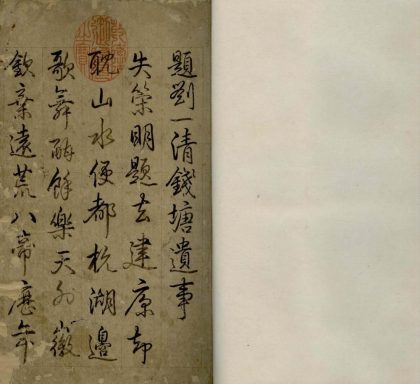 題劉一清錢塘遺事
失策明題去建康却
耽山水便都杭湖邊
歌舞酣餘樂天外徽
欽棄遠荒八帝歷年